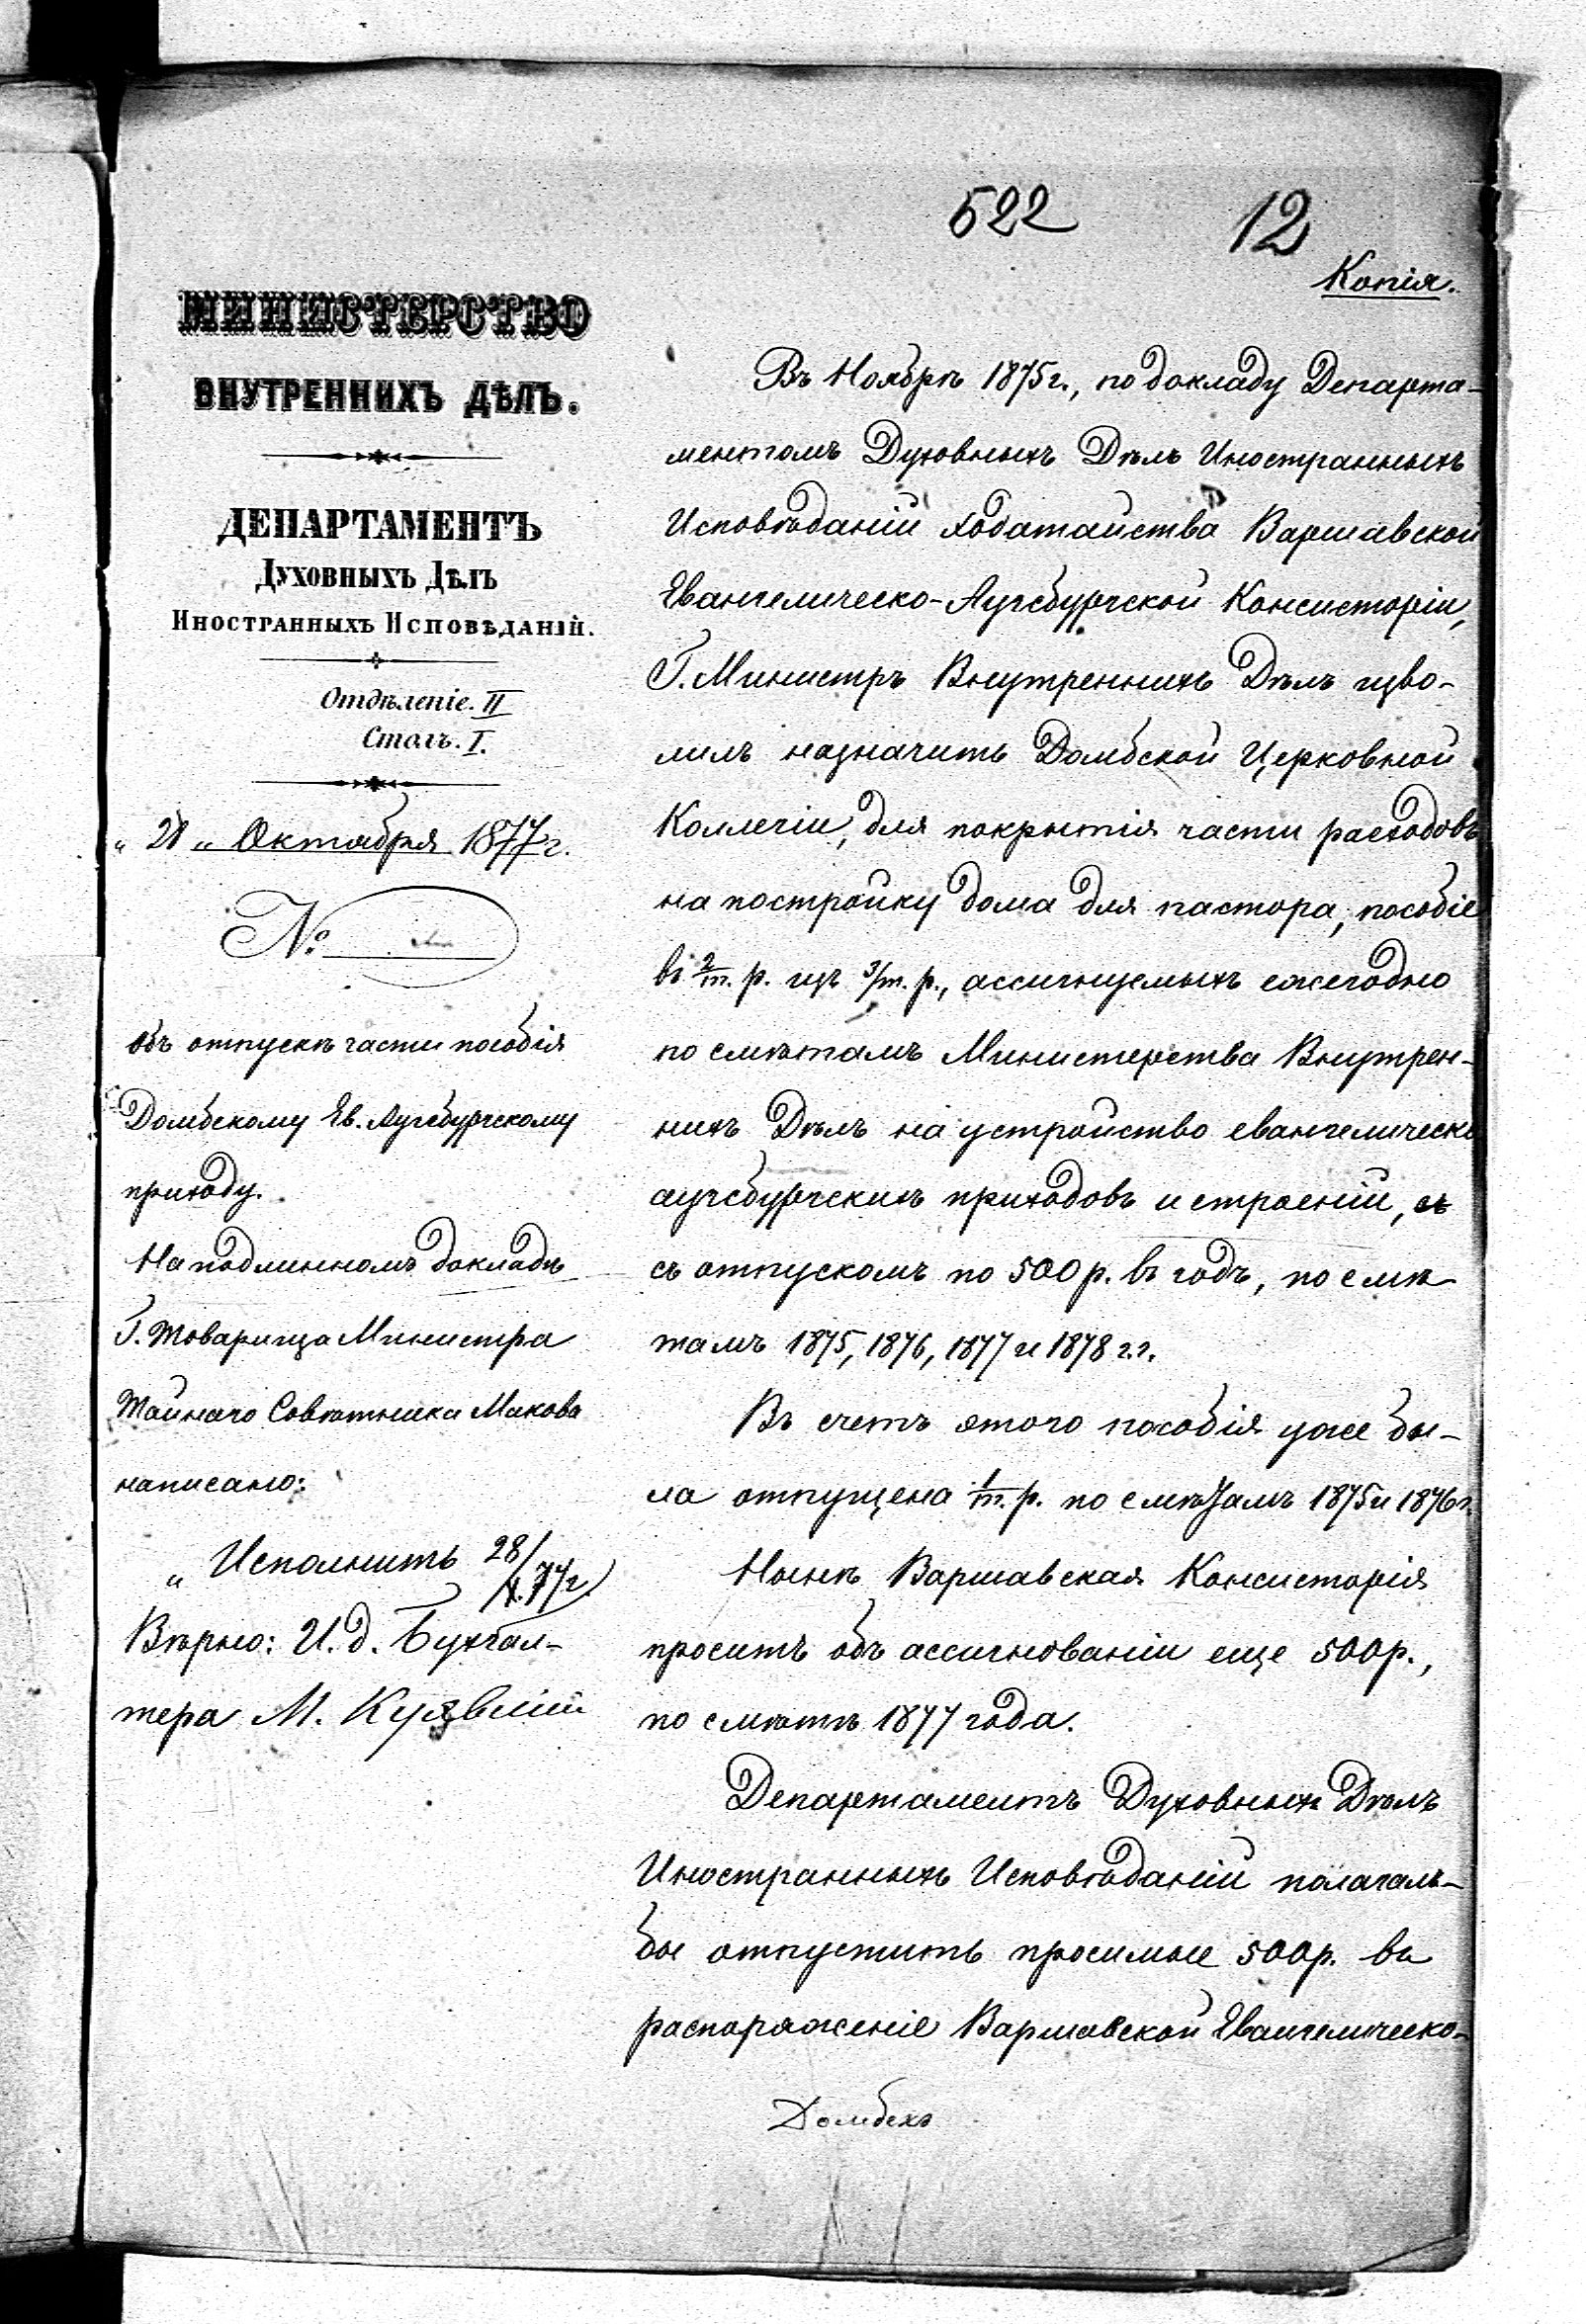 522
12
Копія.
МИНИСТЕРСТВО
ВНУТРЕННИХЪ ДѢЛЪ.
ДЕПАРТАМЕНТЪ
Духовныхъ Дѣлъ
Иностранныхъ Исповѣданій.
Отдѣленіе. II
Столъ. I.
Октября 1877 г.
№
объ отпускѣ части пособія
Домбскому Ев. Аугсбургскому
приходу.
На подлинномъ докладѣ
Г. Товарища Министра
Тайнаго Совѣтника Макова
написано:
„Исполнить 28/X.77 г.
Вѣрно: И. д. Бухгал-
тера М.
Въ Ноябрѣ 1875 г., по докладу Департа-
ментомъ Духовныхъ Дѣлъ Иностранныхъ
Исповѣданій ходатайства Варшавской
Евангелическо-Аугсбургской Консисторіи,
Г. Министръ Внутреннихъ Дѣлъ изво-
лилъ назначить Домбской Церковной
Коллегіи, для покрытія части расходовъ
на постройку дома для пастора, пособіе
въ 2/т. р. изъ 3/т. р., ассигнуемыхъ ежегодно
по смѣтамъ Министерства Внутрен-
нихъ Дѣлъ на устройство евангелическо
аугсбургскихъ приходовъ и строеній, съ
съ отпускомъ по 500 р. въ годъ, по смѣ-
тамъ 1875, 1876, 1877 и 1878 г.г.
Въ счетъ этого пособія уже бы-
ла отпущена 1/т. р. по смѣтамъ 1875 и 1876 г.
Нынѣ Варшавская Консисторія
проситъ объ ассигнованіи еще 500 р.,
по смѣтѣ 1877 года.
Департаментъ Духовныхъ Дѣлъ
Иностранныхъ Исповѣданій полагалъ-
бы отпустить просимые 500 р. въ
распоряженіе Варшавской Евангелическо-